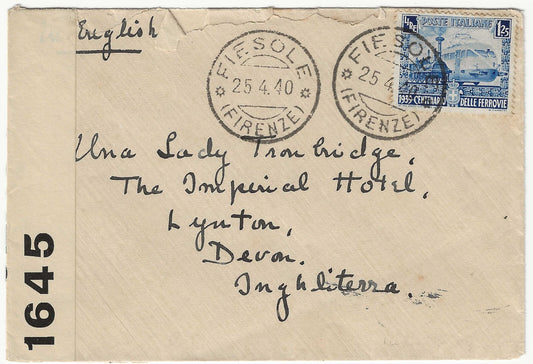 English
FIESOLE
25 4.40
(FIRENZE)
FIESOLE
25 4 40
(FIRENZE)
POSTE ITALIANE
LIRE 1,25
1939 CENTENARIO DELLE FERROVIE
Una Lady Tronbridge,
The Imperial Hotel,
Lynton,
Devon.
Inghliterra.
1645